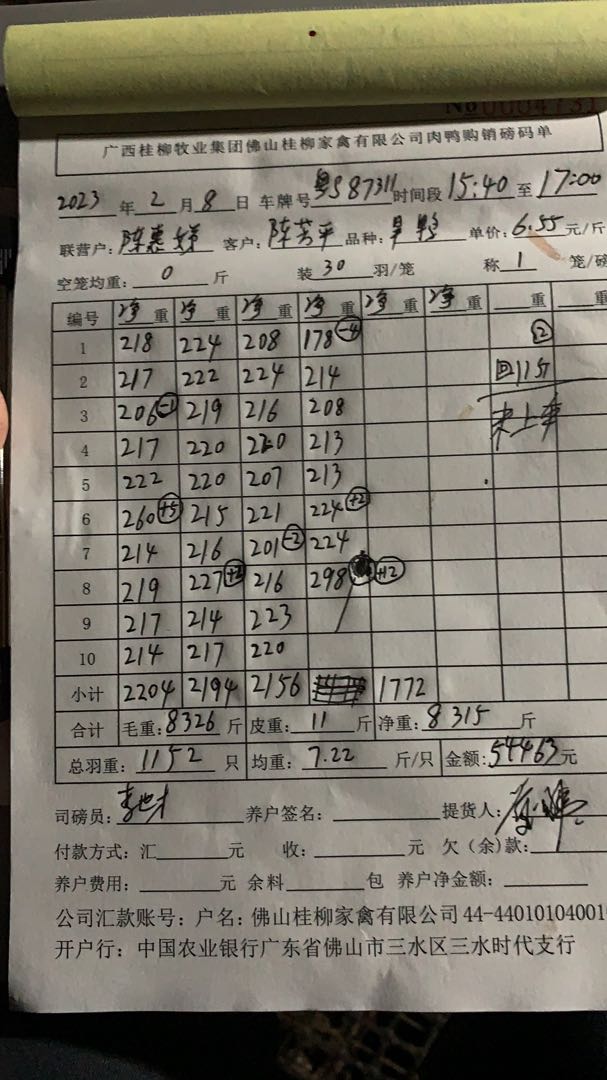 No 0004731
广西桂柳牧业集团佛山桂柳家禽有限公司肉鸭购销磅码单
2023 年 2 月 8 日 车牌号 粤S87311 时间段 15:40 至 17:00
联营户: 陈惠娣 客户: 陈芳平 品种: 旱鸭 单价: 6.55 元/斤
空笼均重: 0 斤 装 30 羽/笼 称 1 笼/磅
编号 净重 净重 净重 净重 净重 净重 重 重
1 218 224 208 178 -4 2
2 217 222 224 214 回11斤
3 206 219 216 208 未上车
4 217 220 220 213
5 222 220 207 213
6 260 +5 215 221 224 +2
7 214 216 201 -2 224
8 219 227 216 298 +12
9 217 214 223
10 214 217 220
小计 2204 2194 2156 1772
合计 毛重: 8326 斤 皮重: 11 斤 净重: 8315 斤
总羽重: 1152 只 均重: 7.22 斤/只 金额: 54463 元
司磅员: 养户签名: 提货人:
付款方式: 汇 元 收: 元 欠(余)款:
养户费用: 元 余料 包 养户净金额:
公司汇款账号: 户名: 佛山桂柳家禽有限公司 44-44010104001
开户行: 中国农业银行广东省佛山市三水区三水时代支行